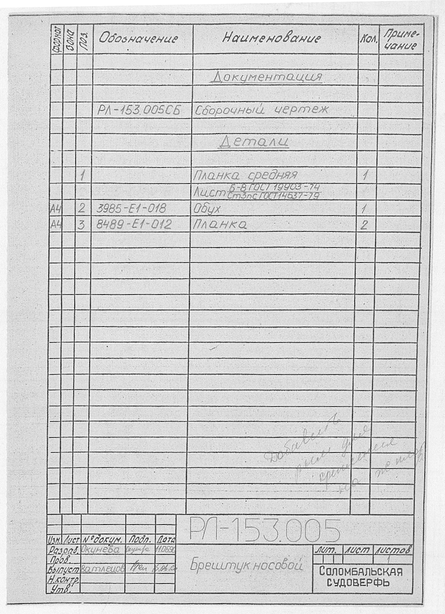 Формат Зона Поз. Обозначение Наименование Кол. Приме-
чание
Документация
РЛ-153.005СБ Сборочный чертеж
Детали
1 Планка средняя 1
Лист Б-8 ГОСТ 19903-74
Ст3пс ГОСТ 14637-79
А4 2 3985-Е1-018 Обух 1
А4 3 8489-Е1-012 Планка 2
Добавить
РЛ-153.005
Изм. Лист № докум. Подп. Дата
Разраб. Окунева
Пров.
Выпуст.
Н.контр.
Утв.
Брештук носовой
Лит. Лист Листов
1
Соломбальская
судоверфь